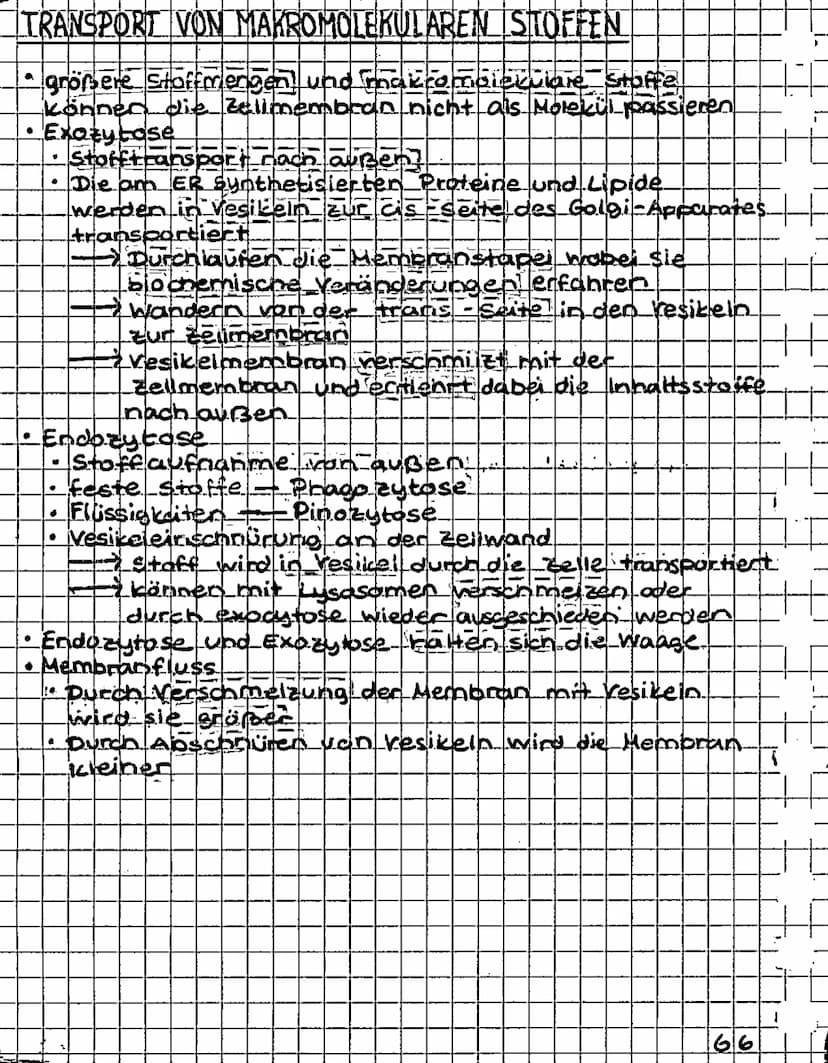 TRANSPORT VON MAKROMOLEKULAREN STOFFEN
• größere Stoffmengen und makromolekulare Stoffe
können die Zellmembran nicht als Molekül passieren
• Exozytose
• Stofftransport nach außen
• Die am ER synthetisierten Proteine und Lipide
werden in Vesikeln zur cis-Seite des Golgi-Apparates
transportiert
→ Durchlaufen die Membranstapel wobei sie
biochemische Veränderungen erfahren
→ Wandern von der trans-Seite in den Vesikeln
zur Zellmembran
→ Vesikelmembran verschmilzt mit der
Zellmembran und entlehrt dabei die Inhaltsstoffe
nach außen
• Endozytose
• Stoffaufnahme von außen
• feste Stoffe — Phagozytose
• Flüssigkeiten — Pinozytose
• Vesikeleinschnürung an der Zellwand
→ Stoff wird in Vesikel durch die Zelle transportiert
→ können mit Lysosomen verschmelzen oder
durch exocytose wieder ausgeschieden werden
• Endozytose und Exozytose halten sich die Waage
• Membranfluss
• Durch Verschmelzung der Membran mit Vesikeln
wird sie größer
• Durch Abschnüren von Vesikeln wird die Membran
kleiner
66